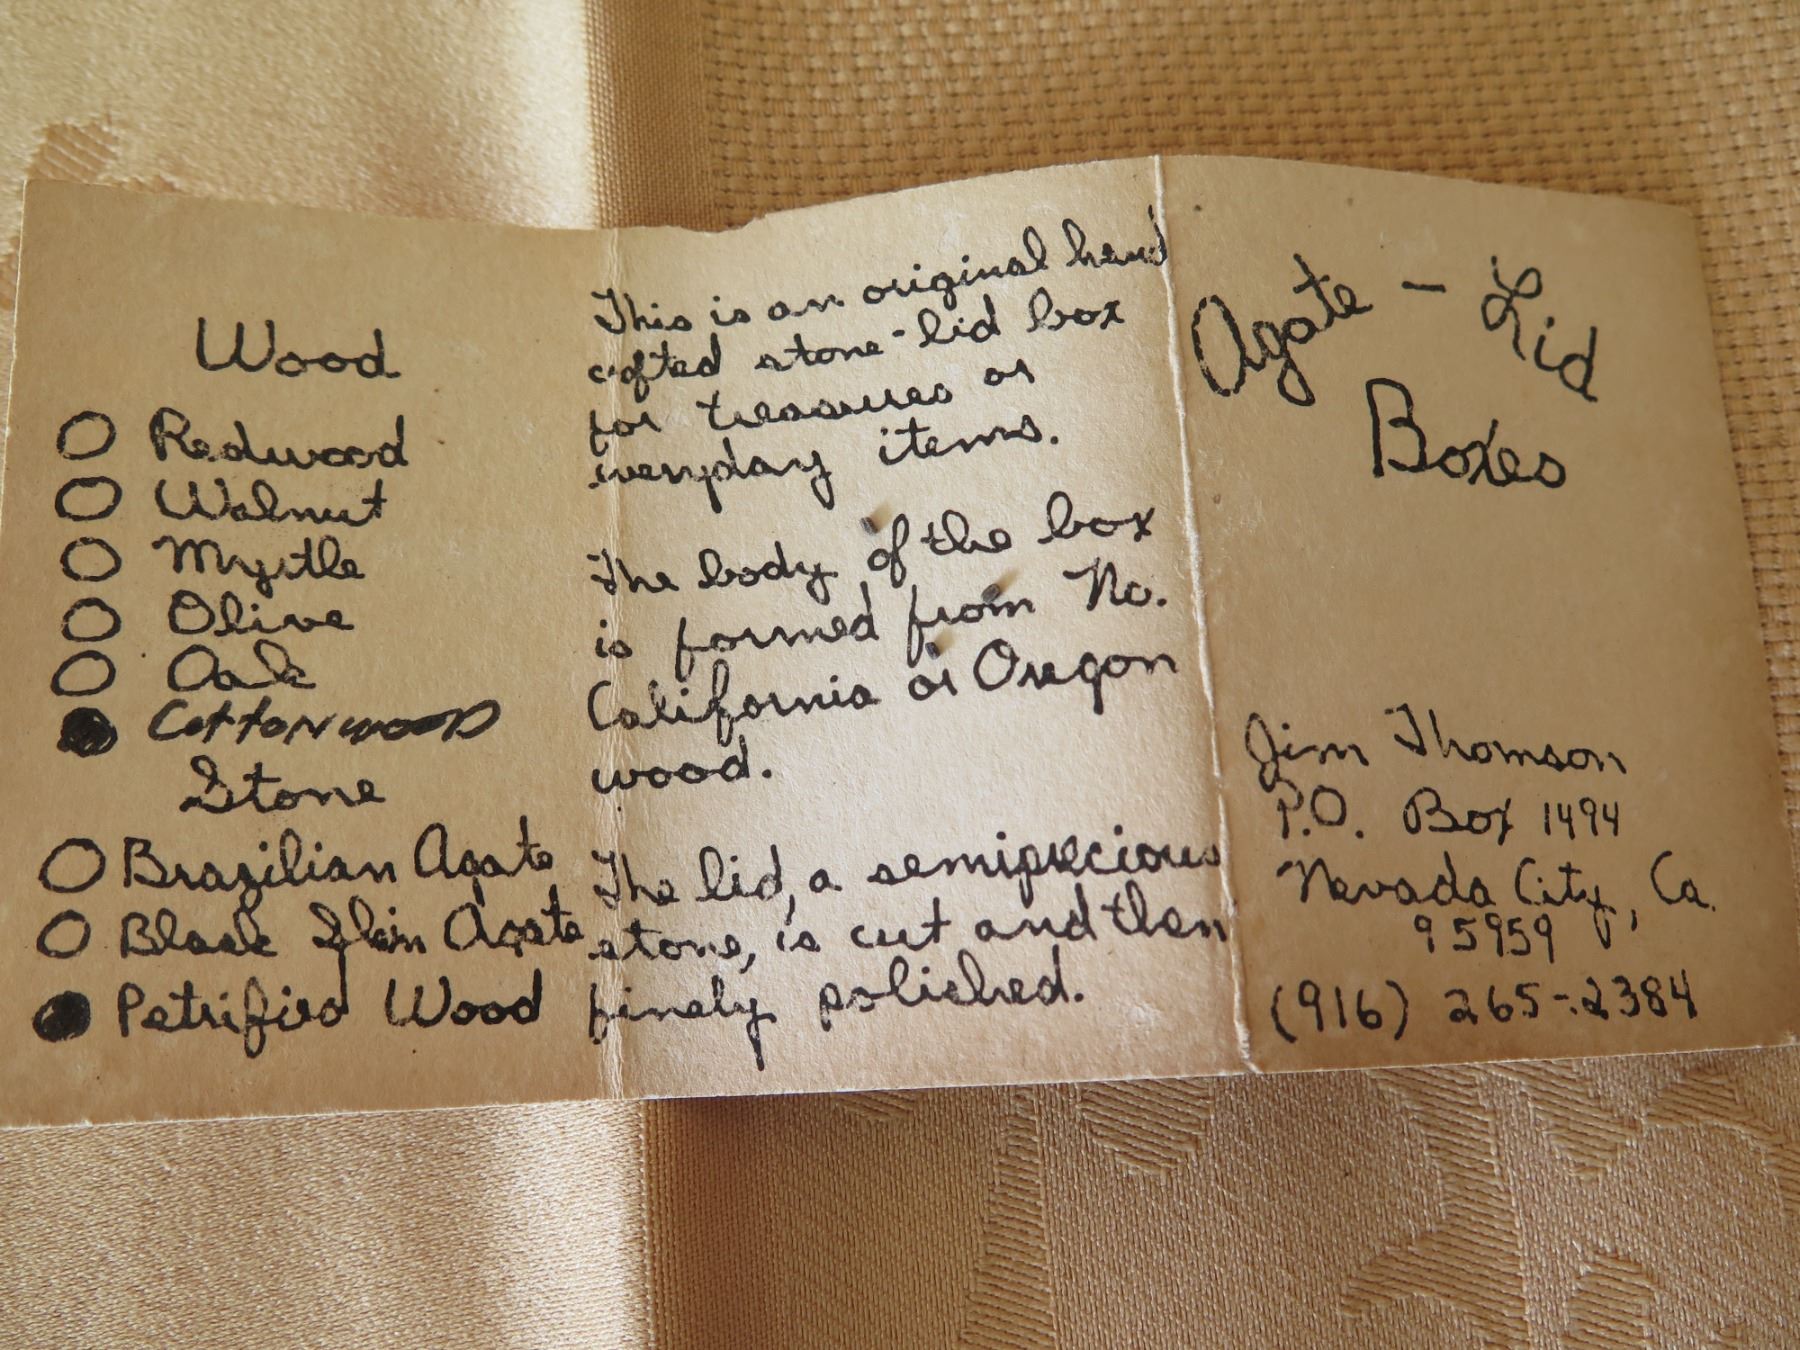 Wood
Redwood
Walnut
Myrtle
Olive
Oak
Cottonwood
Stone
Brazilian Agate
Black Skin Agate
Petrified Wood
This is an original hand
crafted stone-lid box
for treasures or
everyday items.
The body of the box
is formed from No.
California or Oregon
wood.
The lid, a semiprecious
stone, is cut and then
finely polished.
Agate - Lid
Boxes
Jim Thomson
P.O. Box 1494
Nevada City, Ca.
95959
(916) 265-2384